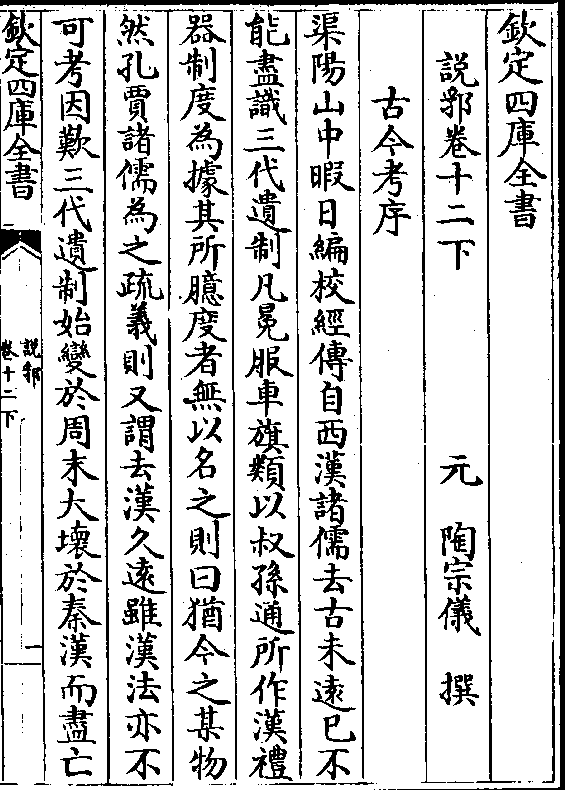 欽定四庫全書
說郛卷十二下
元 陶宗儀 撰
古今考序
渠陽山中暇日編校經傳自西漢諸儒去古未遠已不
能盡識三代遺制凡冕服車旗類以叔孫通所作漢禮
器制度為據其所臆度者無以名之則曰猶今之某物
然孔賈諸儒為之疏義則又謂去漢久遠雖漢法亦不
可考因歎三代遺制始變於周末大壞於秦漢而盡亡
欽定四庫全書
說郛
卷十二下
一